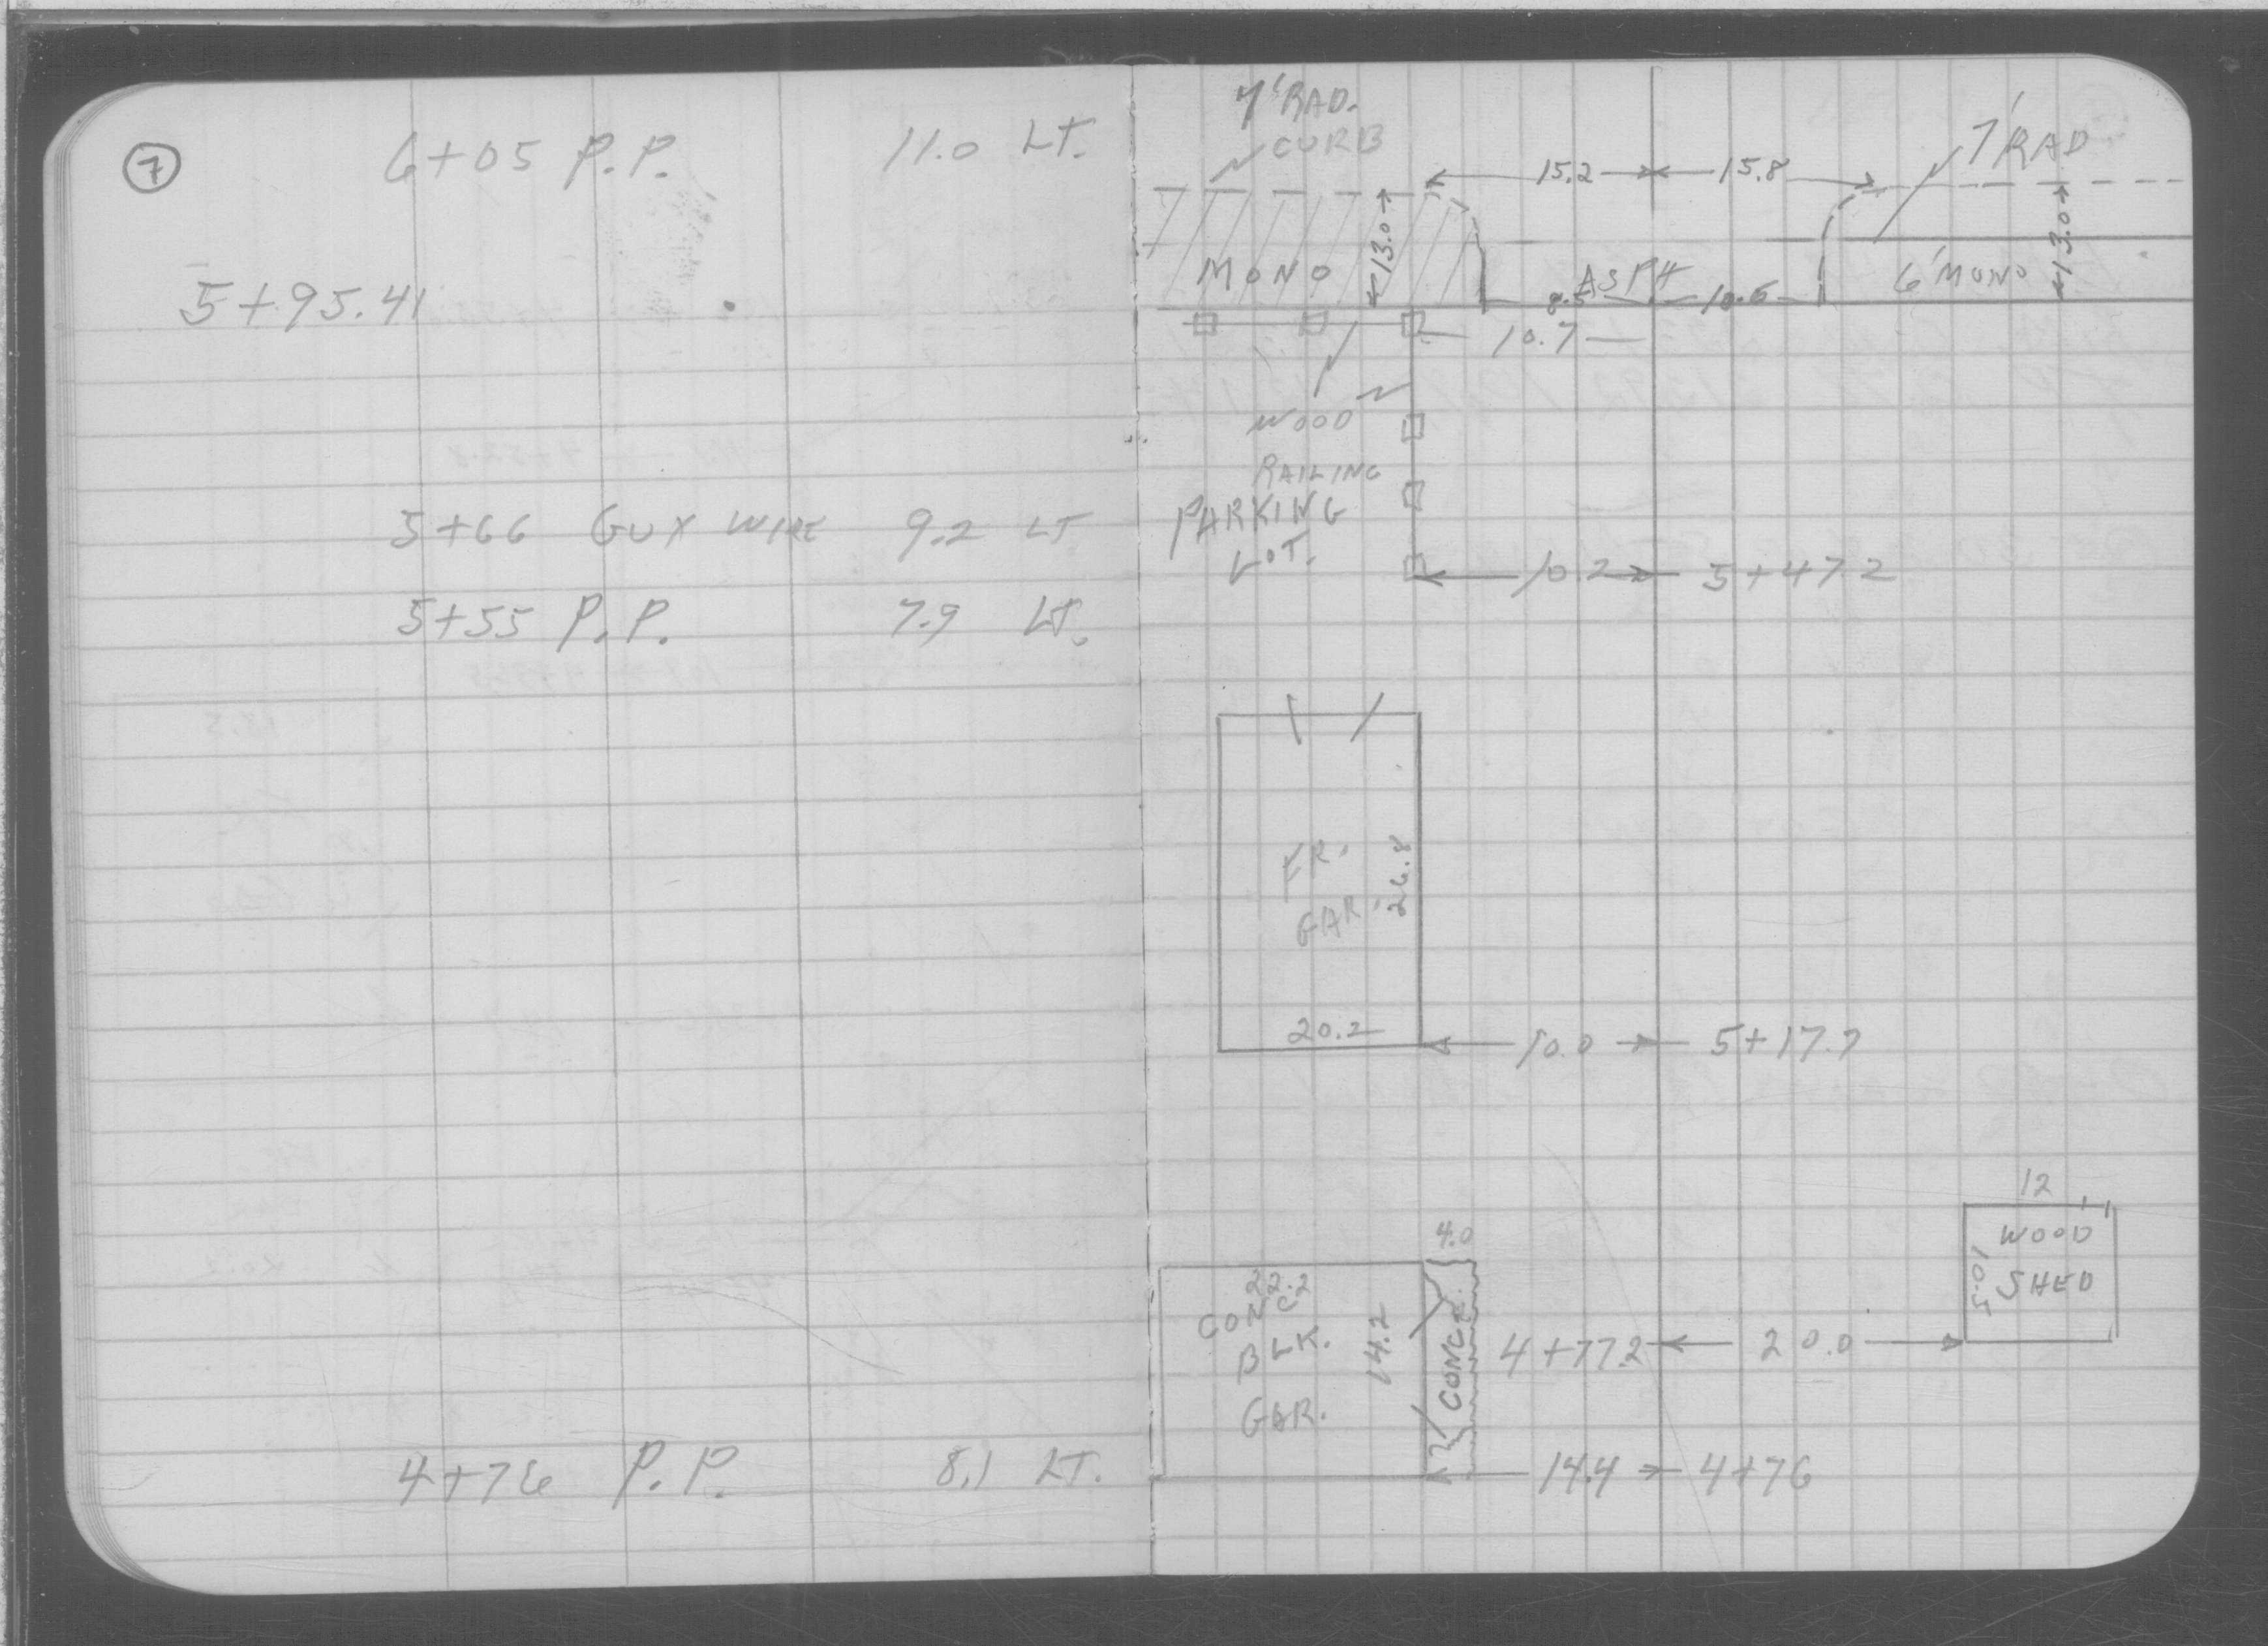 7
6+05 P.P. 11.0 LT.
5+95.41
5+66 GUY WIRE 9.2 LT
5+55 P.P. 7.9 LT.
4+76 P.P. 8.1 LT.
7' RAD.
CURB
15.2 15.8
7' RAD
MONO
13.0
ASPH
6' MONO
13.0
8.5 10.6
10.7
WOOD
RAILING
PARKING
LOT.
10.2 5+47.2
FR.
GAR.
26.8
20.2
10.0 5+17.7
12
WOOD
SHED
10.5
4.0
22.2
CONC
BLK.
GAR.
14.2
CONC.
4+77.2 20.0
14.4 4+76